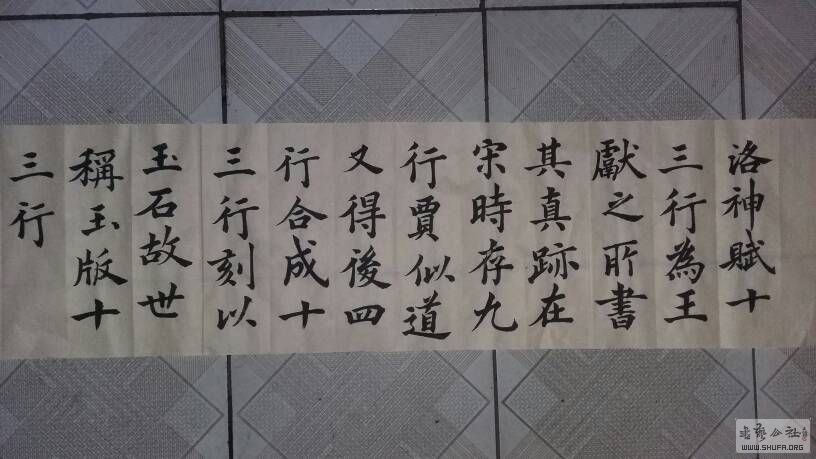 洛神賦十
三行為王
獻之所書
其真跡在
宋時存九
行賈似道
又得後四
行合成十
三行刻以
玉石故世
稱玉版十
三行
WWW.SHUFA.ORG